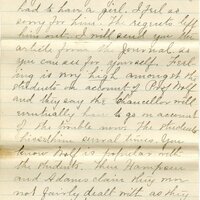 had to have a girl. I feel so
sorry for him. The regents left
him out. I will send you the
article from the Journal so
you can see for yourself. Feel-
ing is very high amongst the
students on account of Prof Wolf
and they say the Chancellor will
eventually have to go on account
of the trouble now. The students
several times. You
know Wolf is popular with
the students. Then Thompson
and Adams claim they were
not fairly dealt with as they